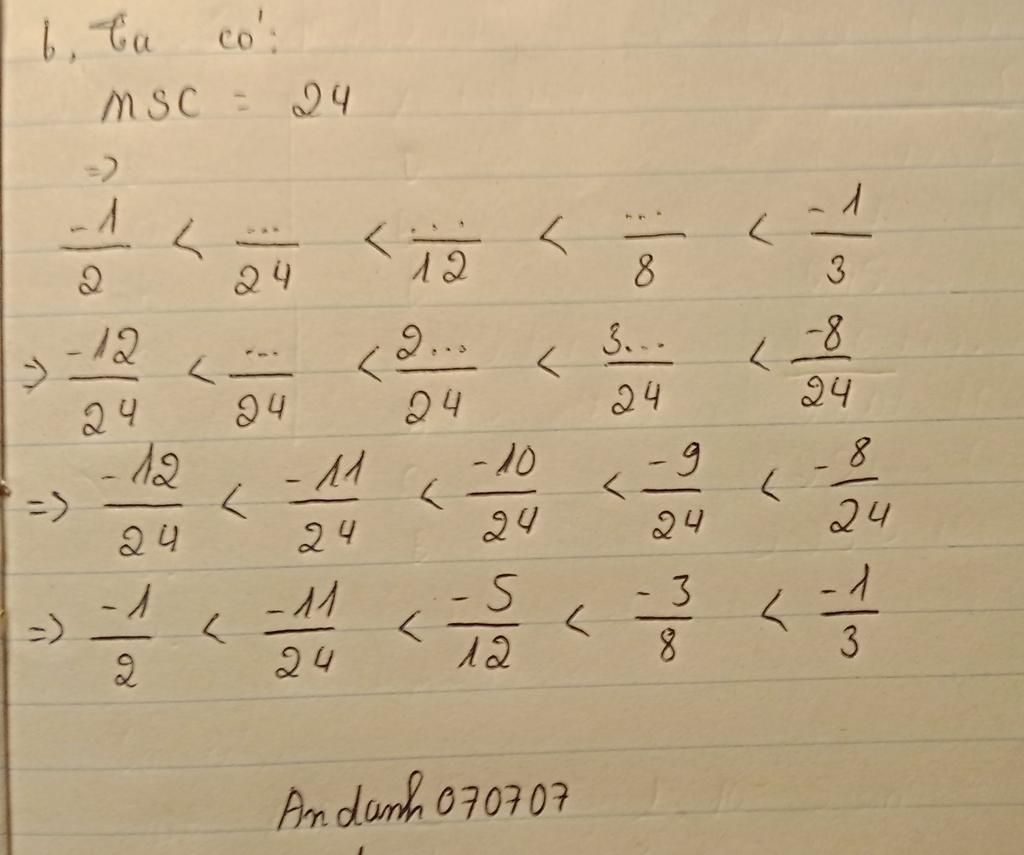 b, Ta có:
MSC = 24
=>
-1/2 < .../24 < .../12 < .../8 < -1/3
=> -12/24 < .../24 < 2.../24 < 3.../24 < -8/24
=> -12/24 < -11/24 < -10/24 < -9/24 < -8/24
=> -1/2 < -11/24 < -5/12 < -3/8 < -1/3
Andanh070707